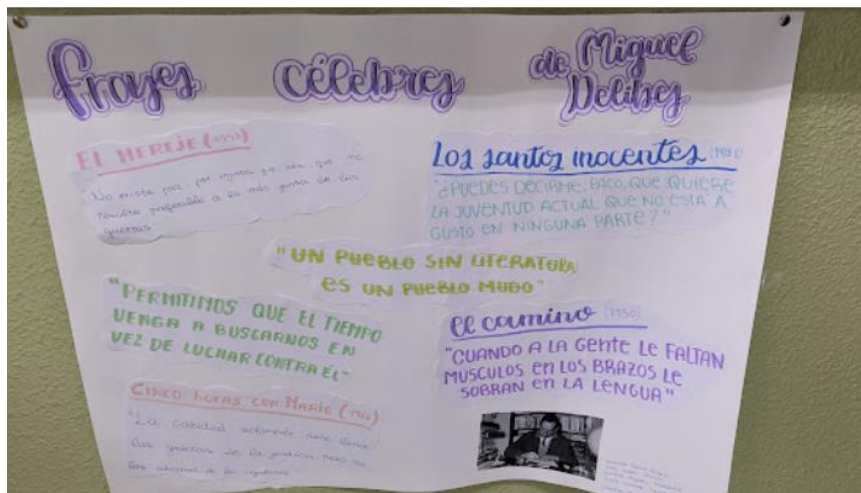 Frases Célebres de Miguel Delibes
EL HEREJE (1998)
"No existe paz, por injusta que sea, que no
resulte preferible a la más justa de las
guerras"
Los santos inocentes (1981)
"¿PUEDES DECIRME, PACO, QUE QUIERE
LA JUVENTUD ACTUAL QUE NO ESTÁ A
GUSTO EN NINGUNA PARTE?"
"UN PUEBLO SIN LITERATURA
ES UN PUEBLO MUDO"
"PERMITIMOS QUE EL TIEMPO
VENGA A BUSCARNOS EN
VEZ DE LUCHAR CONTRA ÉL"
El camino (1950)
"CUANDO A LA GENTE LE FALTAN
MÚSCULOS EN LOS BRAZOS LE
SOBRAN EN LA LENGUA"
CINCO HORAS CON MARIO (1966)
"La caridad solamente debe llenar
las grietas de la justicia pero no
los abismos de la injusticia"